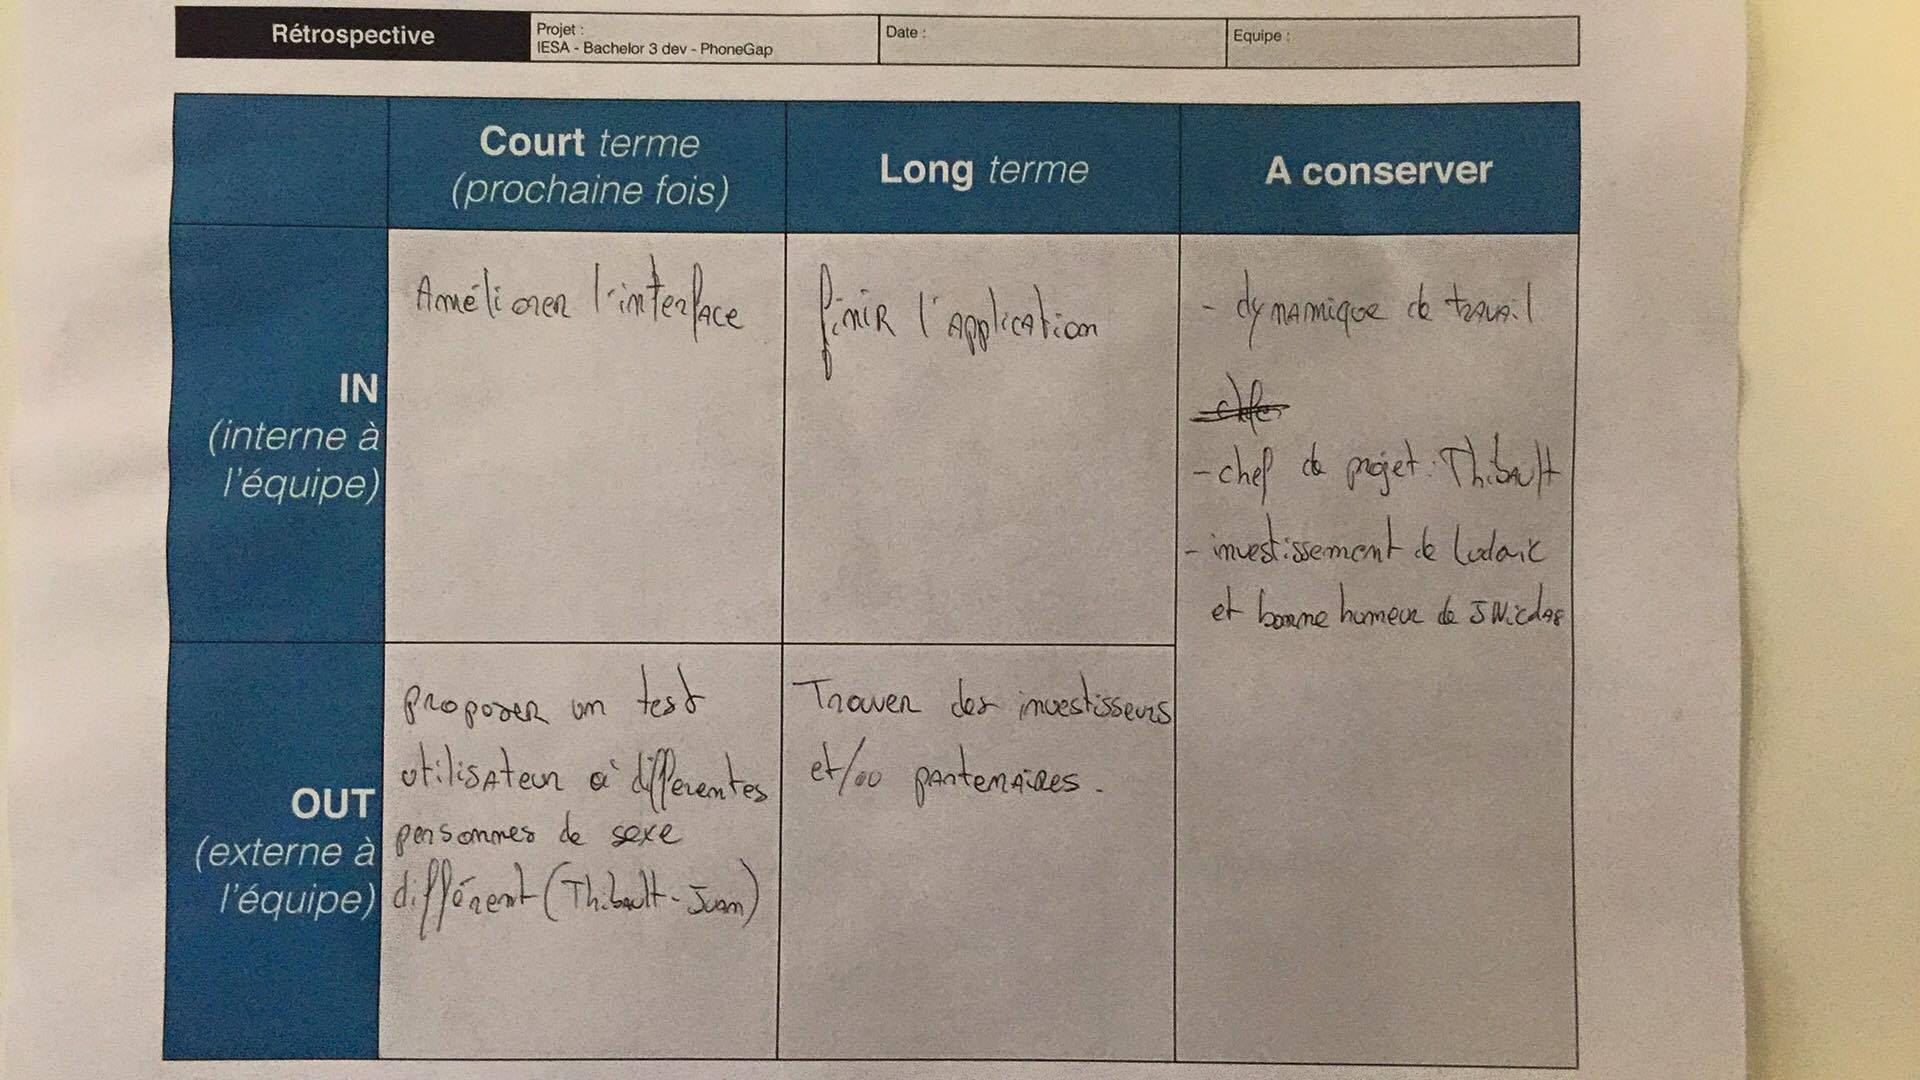 Rétrospective
Projet :
IESA - Bachelor 3 dev - PhoneGap
Date :
Equipe :
Court terme
(prochaine fois)
Long terme
A conserver
IN
(interne à
l'équipe)
Améliorer l'interface
finir l'application
- dynamique de travail
- chef de projet : Thibault
- investissement de
et bonne humeur de
OUT
(externe à
l'équipe)
proposer un test
utilisateur à differentes
personnes de sexe
différent (Thibault - Juan)
Trouver des investisseurs
et/ou partenaires.